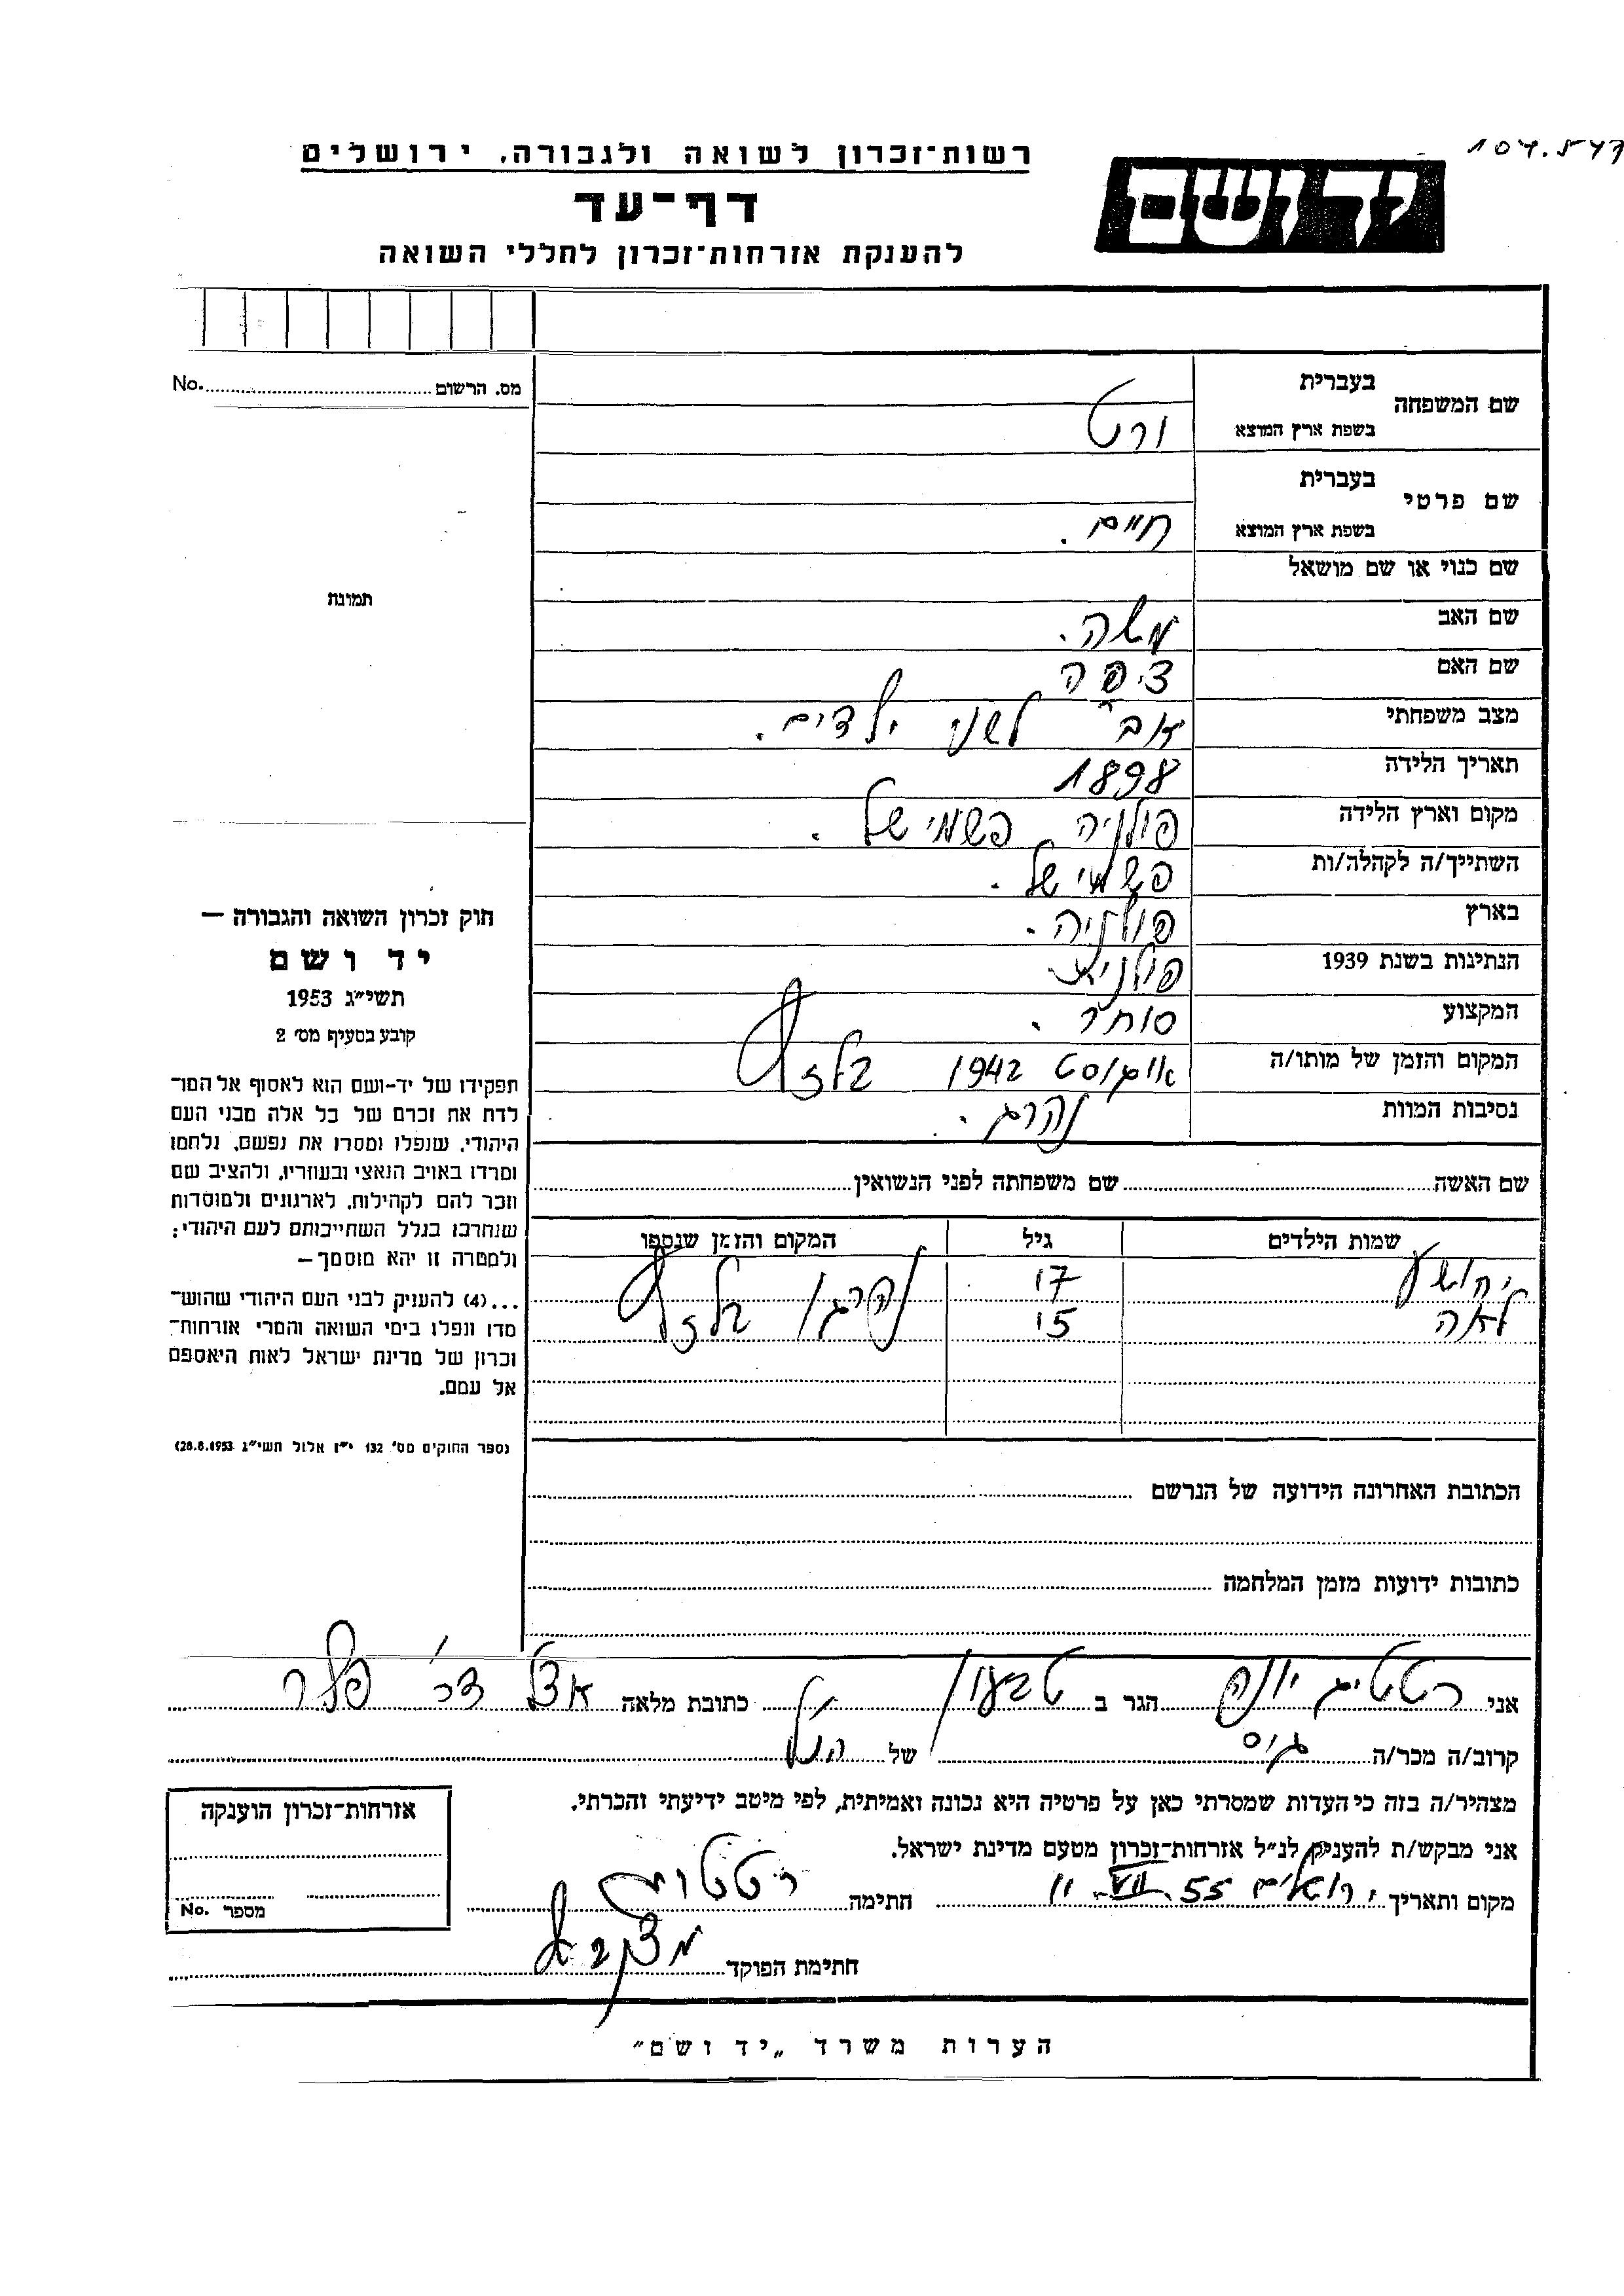 104.547
רשות־זכרון לשואה ולגבורה, ירושלים
יד ושם
דף־עד
להענקת אזרחות־זכרון לחללי השואה
מס. הרשום No.
שם המשפחה
בעברית
בשפת ארץ המוצא
ורט
שם פרטי
בעברית
בשפת ארץ המוצא
חיים.
שם כנוי או שם מושאל
תמונה
שם האב משה.
שם האם ציפה
מצב משפחתי אב לשני ילדים.
תאריך הלידה 1898
מקום וארץ הלידה פולניה פשמישל.
השתייך/ה לקהלה/ות פשמישל.
בארץ פולניה.
הנתינות בשנת 1939 פולנית
המקצוע סוחר.
המקום והזמן של מותו/ה אוגוסט 1942 בלזץ
נסיבות המוות נהרג.
שם האשה שם משפחתה לפני הנשואין
שמות הילדים גיל המקום והזמן שנספו
יהושע 17 נהרגו בלזץ
לאה 15
חוק זכרון השואה והגבורה —
יד ושם
תשי״ג 1953
קובע בסעיף מס׳ 2
תפקידו של יד-ושם הוא לאסוף אל המו־
לדת את זכרם של כל אלה מבני העם
היהודי, שנפלו ומסרו את נפשם, נלחמו
ומרדו באויב הנאצי ובעוזריו, ולהציב שם
וזכר להם לקהילות, לארגונים ולמוסדות
שנחרבו בגלל השתייכותם לעם היהודי;
ולמטרה זו יהא מוסמך—
...(4) להעניק לבני העם היהודי שהוש־
מדו ונפלו בימי השואה והמרי אזרחות־
זכרון של מדינת ישראל לאות היאספם
אל עמם.
נספר החוקים מס׳ 132 י״ז אלול תשי״ג 28.8.1953)
הכתובת האחרונה הידועה של הנרשם
כתובות ידועות מזמן המלחמה
אני רטטיג יונה הגר ב טבעון כתובת מלאה אצל דר׳ פלר
קרוב/ה מכר/ה גיס של הנ״ל
מצהיר/ה בזה כי העדות שמסרתי כאן על פרטיה היא נכונה ואמיתית, לפי מיטב ידיעתי והכרתי.
אני מבקש/ת להעניק לנ״ל אזרחות־זכרון מטעם מדינת ישראל.
מקום ותאריך ירושלים 11.VII.55 חתימה
חתימת הפוקד
אזרחות־זכרון הוענקה
מספר No.
הערות משרד „יד ושם״